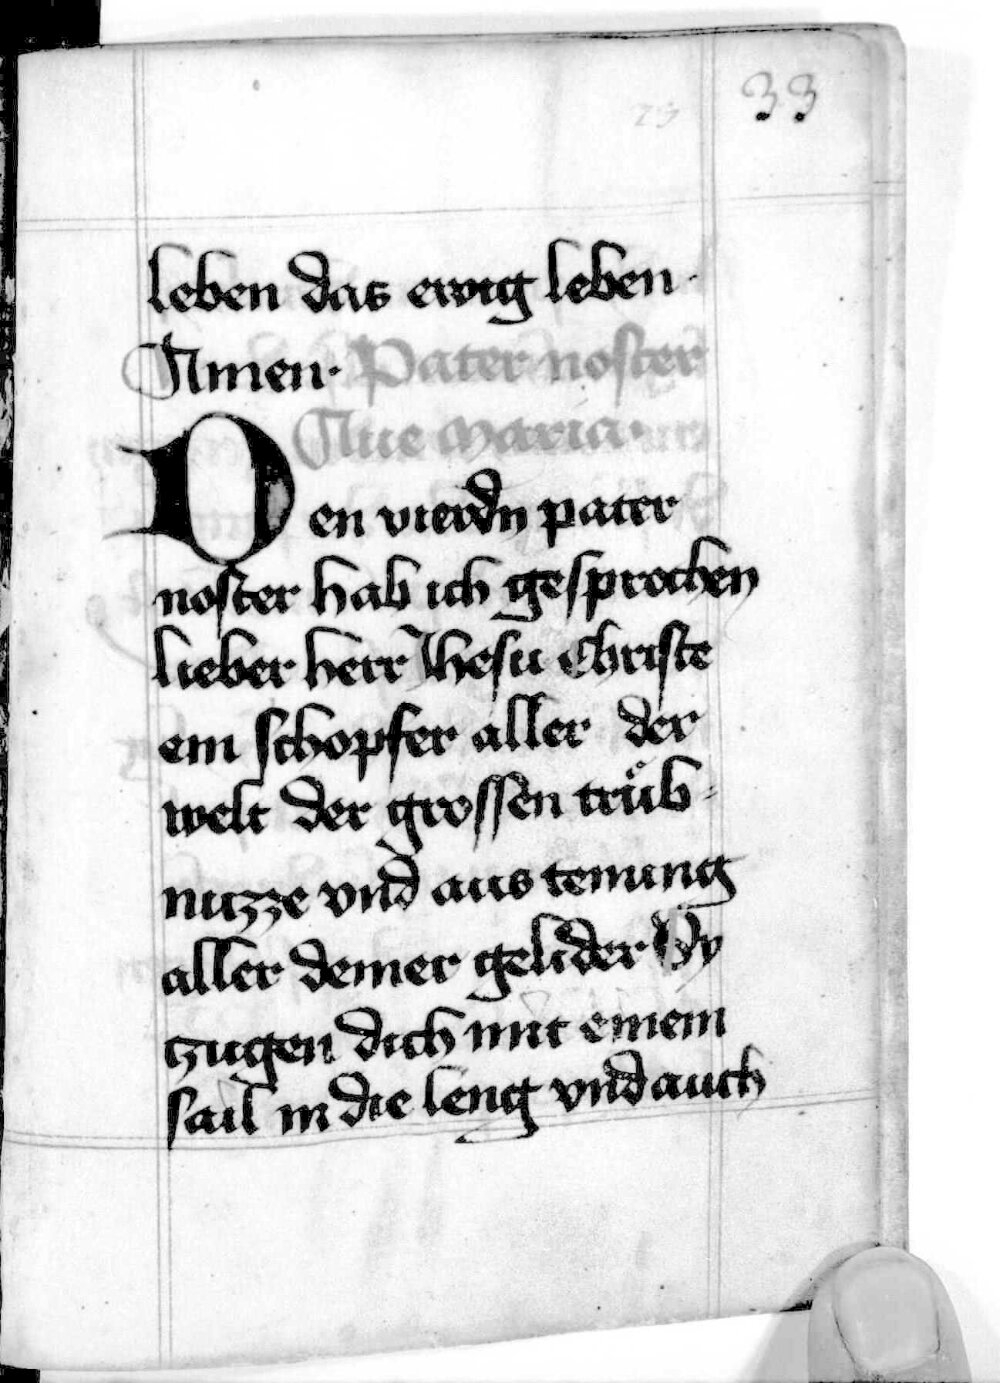 33
23
leben das ewig leben·
Amen· Pater noster
Aue maria·
Den vierdn pater
noster hab ich gesprochen
lieber herr Ihesu Christe
ein schopfer aller der
welt der grossen trůb-
nuzze vnd aus tenung
aller deiner gelider Sy
tzugen dich mit einem
sail in die leng vnd auch